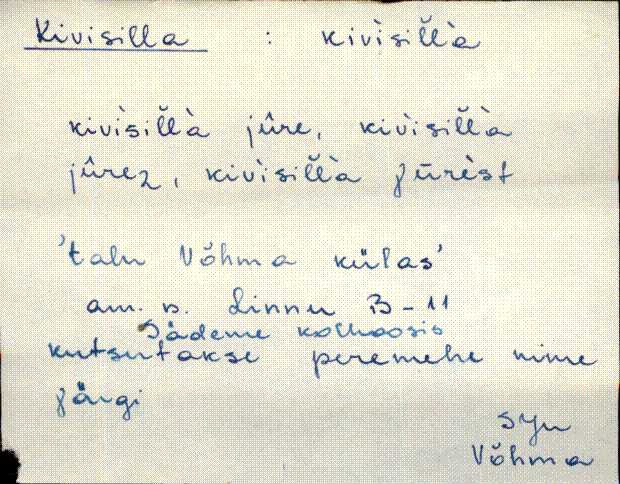 Kivisilla : kivìsil̆l̆à
kivìsil̆l̆à jûre, kivìsil̆l̆à
jûrez, kivìsil̆l̆à jūrèst
'talu Võhma külas'
am. n. Linnu B-11
Sädeme kolhoosis
kutsutakse peremehe nime
järgi
SJn
Võhma